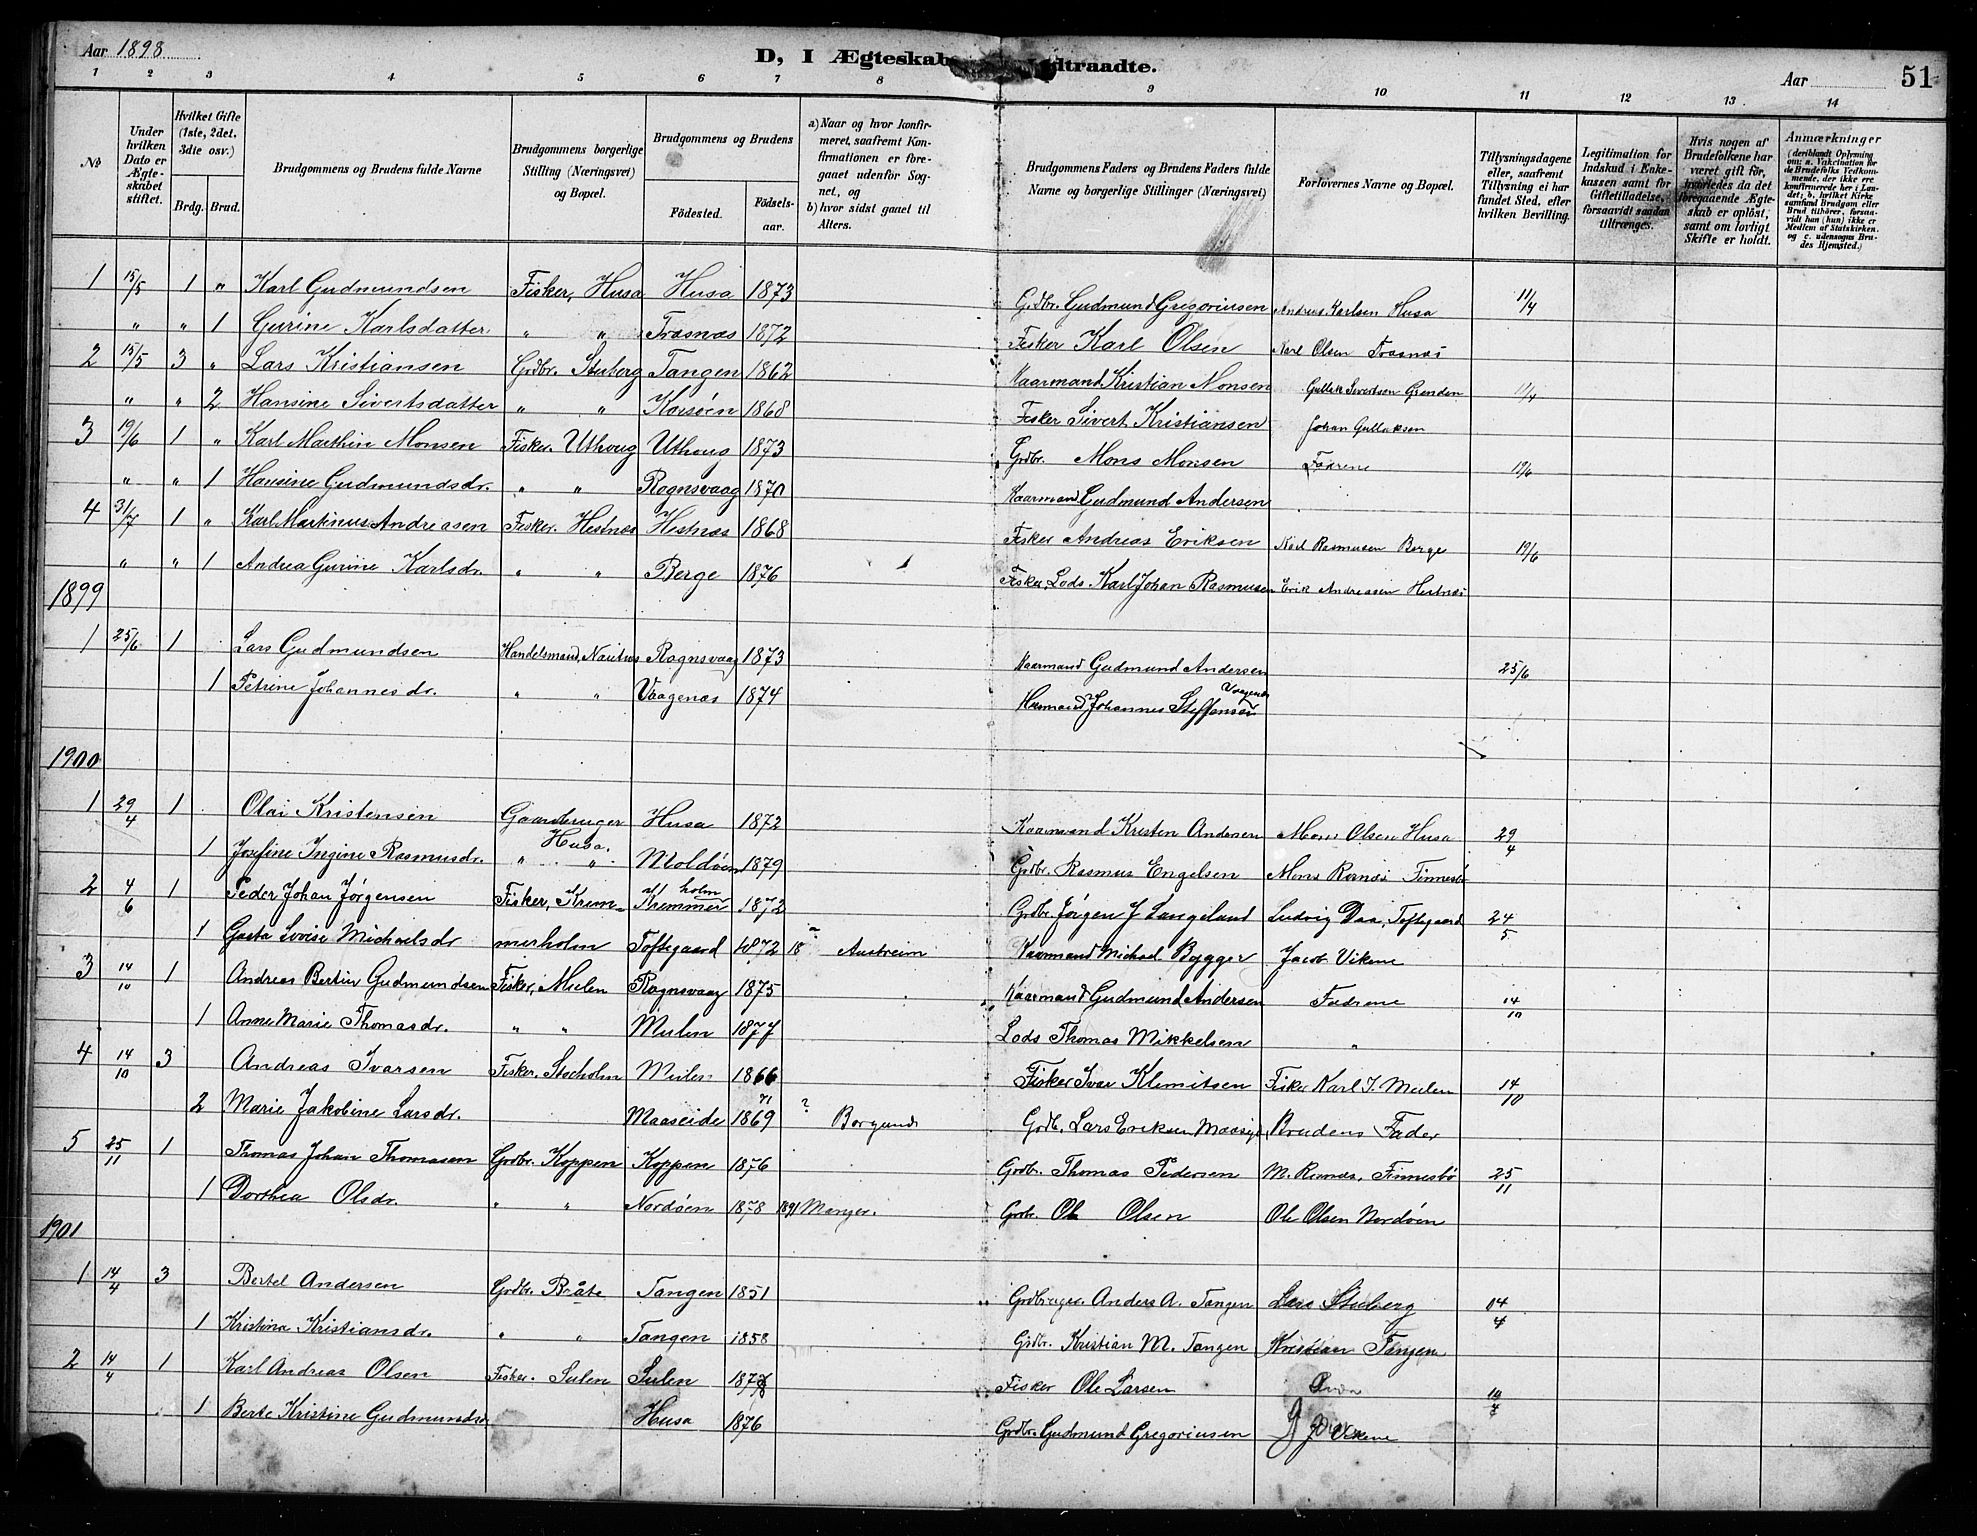 Aar 1898
D, I Ægteskab Indtraadte.
Aar
51
1 2 3 4 5 6 7 8 9 10 11 12 13 14
No
Under hvilken Dato er Ægteskabet stiftet.
Hvilket Gifte (1ste, 2det, 3die osv.)
Brdg. Brud.
Brudgommens og Brudens fulde Navne
Brudgommens borgerlige Stilling (Næringsvei) og Bopæl.
Brudgommens og Brudens
Fødested.
Fødselsaar.
a) Naar og hvor konfirmeret, saafremt Konfirmationen er foregaaet udenfor Sognet, og
b) hvor sidst gaaet til Alters.
Brudgommens Faders og Brudens Faders fulde Navne og borgerlige Stillinger (Næringsvei)
Forlovernes Navne og Bopæl.
Tillysningsdagene eller, saafremt Tillysning ei har fundet Sted, efter hvilken Bevilling.
Legitimation for Indskud i Enkekassen samt for Giftetilladelse, forsaavidt saadan tiltrænges.
Hvis nogen af Brudefolkene har været gift før, hvorledes da det foregaaende Ægteskab er opløst, samt om lovligt Skifte er holdt.
Anmærkninger
(deriblandt Oplysning om: a. Vakcination for de Brudefolks Vedkommende, der ikke ere konfirmerede her i Landet; b. hvilket Kirkesamfund Brudgom eller Brud tilhører, forsaavidt han (hun) ikke er Medlem af Statskirken. og c. udensogns Brudes Hjemsted.)
1 15/5 1 " Karl Gudmundsen Fisker, Husa Husa 1873 Grdbr. Gudmund Gregoriusen Andreas Karlsen Husa 11/4
" " 1 Gurine Karlsdatter " " Træsnæs 1872 Fisker Karl Olsen Karl Olsen Træsnæs
2 15/5 3 " Lars Kristiansen Grdbr. Stuberg Tangen 1862 Kaarmand Kristian Monsen Gullak Sivertsen Grønden 11/4
" " 2 Hansine Sivertsdatter " " Korsøen 1868 Fisker Sivert Kristiansen Johan Gullaksen
3 19/6 1 " Karl Marthin Monsen Fisker. Uthoug Uthoug 1873 Grdbr. Mons Monsen Fædrene 19/6
" " 1 Hansine Gudmundsdr. " " Rognsvaag 1870 Kaarmand Gudmund Andersen
4 31/7 1 " Karl Martinus Andreasen Fisker. Hestnæs Hestnæs 1868 Fisker Andreas Eriksen Karl Rasmusen Berge 19/6
" " 1 Andrea Gurine Karlsdr. " " Berge 1876 Fisker, Lods. Karl Johan Rasmusen Erik Andreasen Hestnæs
1899
1 25/6 1 Lars Gudmundsen Handelsmand, Nautnes Rognsvaag 1873 Kaarmand Gudmund Andersen 25/6
1 Petrine Johannesdr. " " Vaagenæs 1874 Johannes Steffensen Vaagenæs
1900
1 29/4 1 Olai Kristensen Gaardbruger Husa 1872 Kaarmand Kristen Andersen Mons Olsen Husa 29/4
Husa.
1 Josefine Ingine Rasmusdr. " " Moldøen 1879 Grdbr. Rasmus Engelsen Mons Finnesbø
2 4/6 1 Peder Johan Jørgensen Fisker, Krem- Kremmerholm 1872 Grdbr. Jørgen J Langeland Ludvig Daa, Toftegaard 24/5
1 Lovise Michaelsdr merholm Toftegaard 1872 18 ? Austreim Kaarmand Michael Bygger Jacob Vikene
3 14/10 1 Andreas Bertin Gudmundsen Fisker, Mielen Rognsvaag 1875 Kaarmand Gudmund Andersen Fædrene 14/10
1 Anne Marie Thomasdr. " " Mielen 1877 Lods Thomas Mikkelsen "
4 14/10 3 Andreas Ivarsen Fisker. Mielen 1866 Fisker Ivar Klemitsen Fisker Karl I. Mielen 14/10
2 Marie Jakobine Larsdr. Maaseide 71 1869 ? Borgund Grdb. Lars Eriksen Maaseide Brudens Fader
5 25/11 1 Thomas Johan Thomasen Grdbr. Koppen Koppen 1876 Grdbr. Thomas Pedersen M. Finnesbø 25/11
1 Dorthea Olsdr. " " Nordøen 1878 1891 Manger. Grdbr. Ole Olsen Ole Olsen Nordøen
1901
1 14/4 3 Bertel Andersen Grdbr. Bråte Tangen 1851 Anders A. Tangen Lars Stuberg 14/4
1 Kristina Kristiansdr. " " Tangen 1858 Grdbr. Kristian M. Tangen Kristian Tangen
2 14/4 1 Karl Andreas Olsen Fisker. Sulen Sulen Fisker Ole Larsen
1 Berte Kristine Gudmundsdr Husa 1876 Grdbr. Gudmund Gregoriusen Vikene